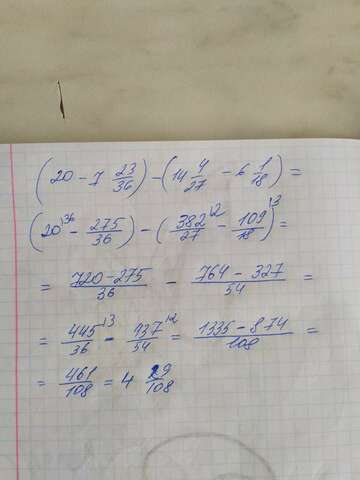 (20 - 7 23/36) - (14 4/27 - 6 1/18) =
(20^36 - 275/36) - (382/27^2 - 109/18^3) =
= 720-275/36 - 764-327/54 =
= 445/36^3 - 437/54^2 = 1335-874/108 =
= 461/108 = 4 29/108